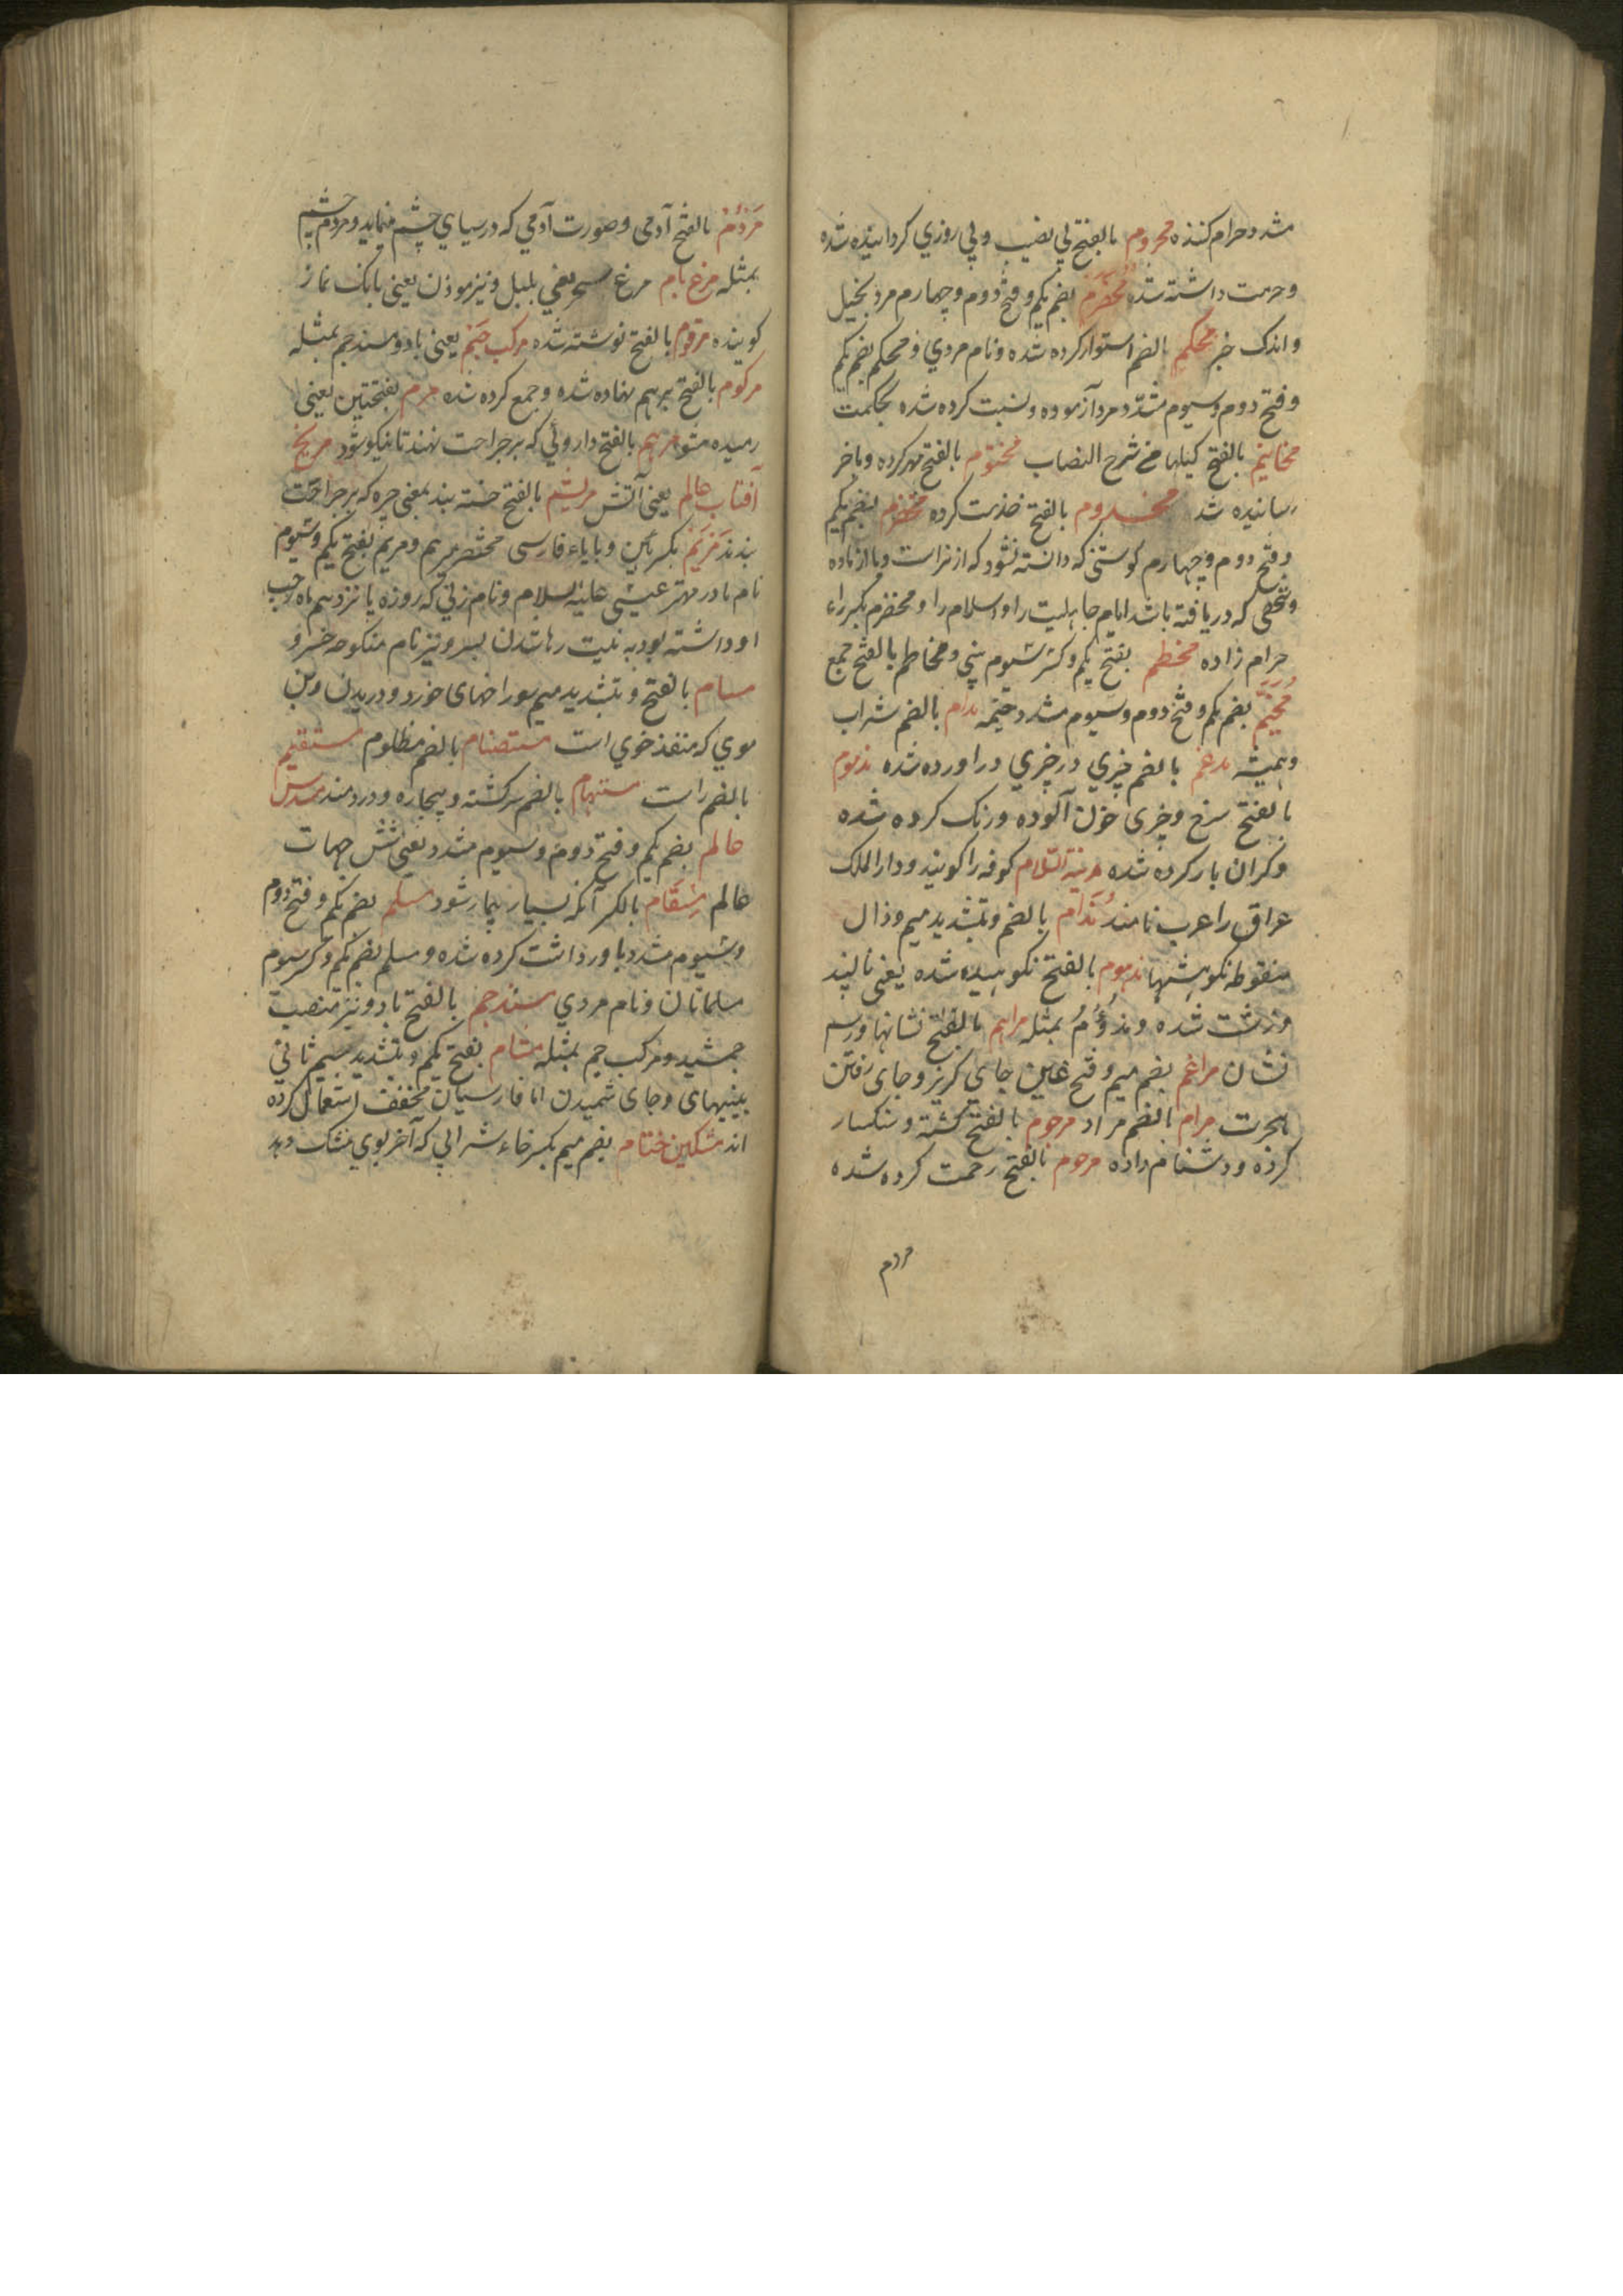 مشدد حرام کننده محروم بالفتح بی نصیب و بی روزی کردانیده شده
و حرمت داشته شده بضم یکم و فتح دوم و چهارم مرد بخیل
و اندک خیر محکم بالضم استوار کرده شده و نام مردی و محکم بضم یکم
و فتح دوم و سیوم مشدد مرد آزموده و نسبت کرده شده بحکمت
بالفتح شرح النصاب مختوم بالفتح مهر کرده و باخر
رسانیده شد مخدوم بالفتح خدمت کرده مخضرم بضم یکم
و فتح دوم و چهارم کوشتی که دانسته نشود که از نر است و یا از ماده
و شخصی که دریافته باشد ایام جاهلیت را و اسلام را و مخضرم بکسر راء
حرام زاده مخطم بفتح یکم و کسر سیوم بینی و مخاطم بالفتح جمع
مخیّم بضم یکم و فتح دوم و سیوم مشدد خیمه مدام بالضم شراب
و همیشه مدغم بالضم چیزی در چیزی دراورده شده مذموم
بالفتح سرخ و چیزی خون آلوده و رنک کرده شده
و کران بار کرده شده مدینة السلام کوفه را کویند و دار الملک
عراق را عرب نامند بالضم و تشدید میم و ذال
منقوطه نکوهشها مذموم بالفتح نکوهیده شده یعنی ناپسند
و زشت شده و مذؤم بمثله مراسم بالفتح نشانها و رسم
نشان مراغم بضم میم و فتح غین جای کریز و جای رفتن
بهجرت مرام بالضم مراد مرجوم بالفتح کشته و سنکسار
کرده و دشنام داده مرحوم بالفتح رحمت کرده شده
مردم
مردم بالفتح آدمی و صورت آدمی که در سیاهی چشم نماید و مردم چشم
بمثله مرغ بام مرغ سحر یعنی بلبل و نیز موذن یعنی بانک نماز
کوینده مرقوم بالفتح نوشته شده مرکب جم یعنی باد و مسند جم بمثله
مرکوم بالفتح برهم نهاده شده و جمع کرده شده مرم بفتحتین یعنی
رمیده مشو مرهم بالفتح داروئی که بر جراحت نهند تا نیکو شود مریخ
آفتاب عالم یعنی آتش بالفتح خسته بند بمعنی که بر جراحت
بندند مریم بکسرتین و با یاء فارسی مختصر و مریم بفتح یکم و سیوم
نام مادر مهتر عیسی علیه السلام و نام زنی که روزه پانزدهم ماه رجب
او داشته بود به نیت پسر و نیز نام منکوحه خسرو
مسام بالفتح و بتشدید میم سوراخهای خورد و دریدن و بن
موی که منفذ خوی است مستضام بالضم مظلوم مستقیم
بالضم راست مستهام بالضم سرکشته و بیچاره و دردمند مسدس
عالم بضم یکم و فتح دوم و سیوم مشدد یعنی شش جهات
عالم مسقام بالکسر آنکه بسیار بیمار شود مسلم بضم یکم و فتح دوم
و سیوم مشدد باور داشت کرده شده و مسلم بضم یکم و کسر سیوم
مسلمانان و نام مردی مسند جم بالفتح باد و نیز منصب
جمشید و مرکب جم بمثله مشام بفتح یکم و بتشدید میم ثانی
بینیهای و جای شمیدن اما فارسیان مخفف استعمال کرده
اند مشکین ختام بضم میم بکسر خاء شرابی که آخر بوی مشک دهد